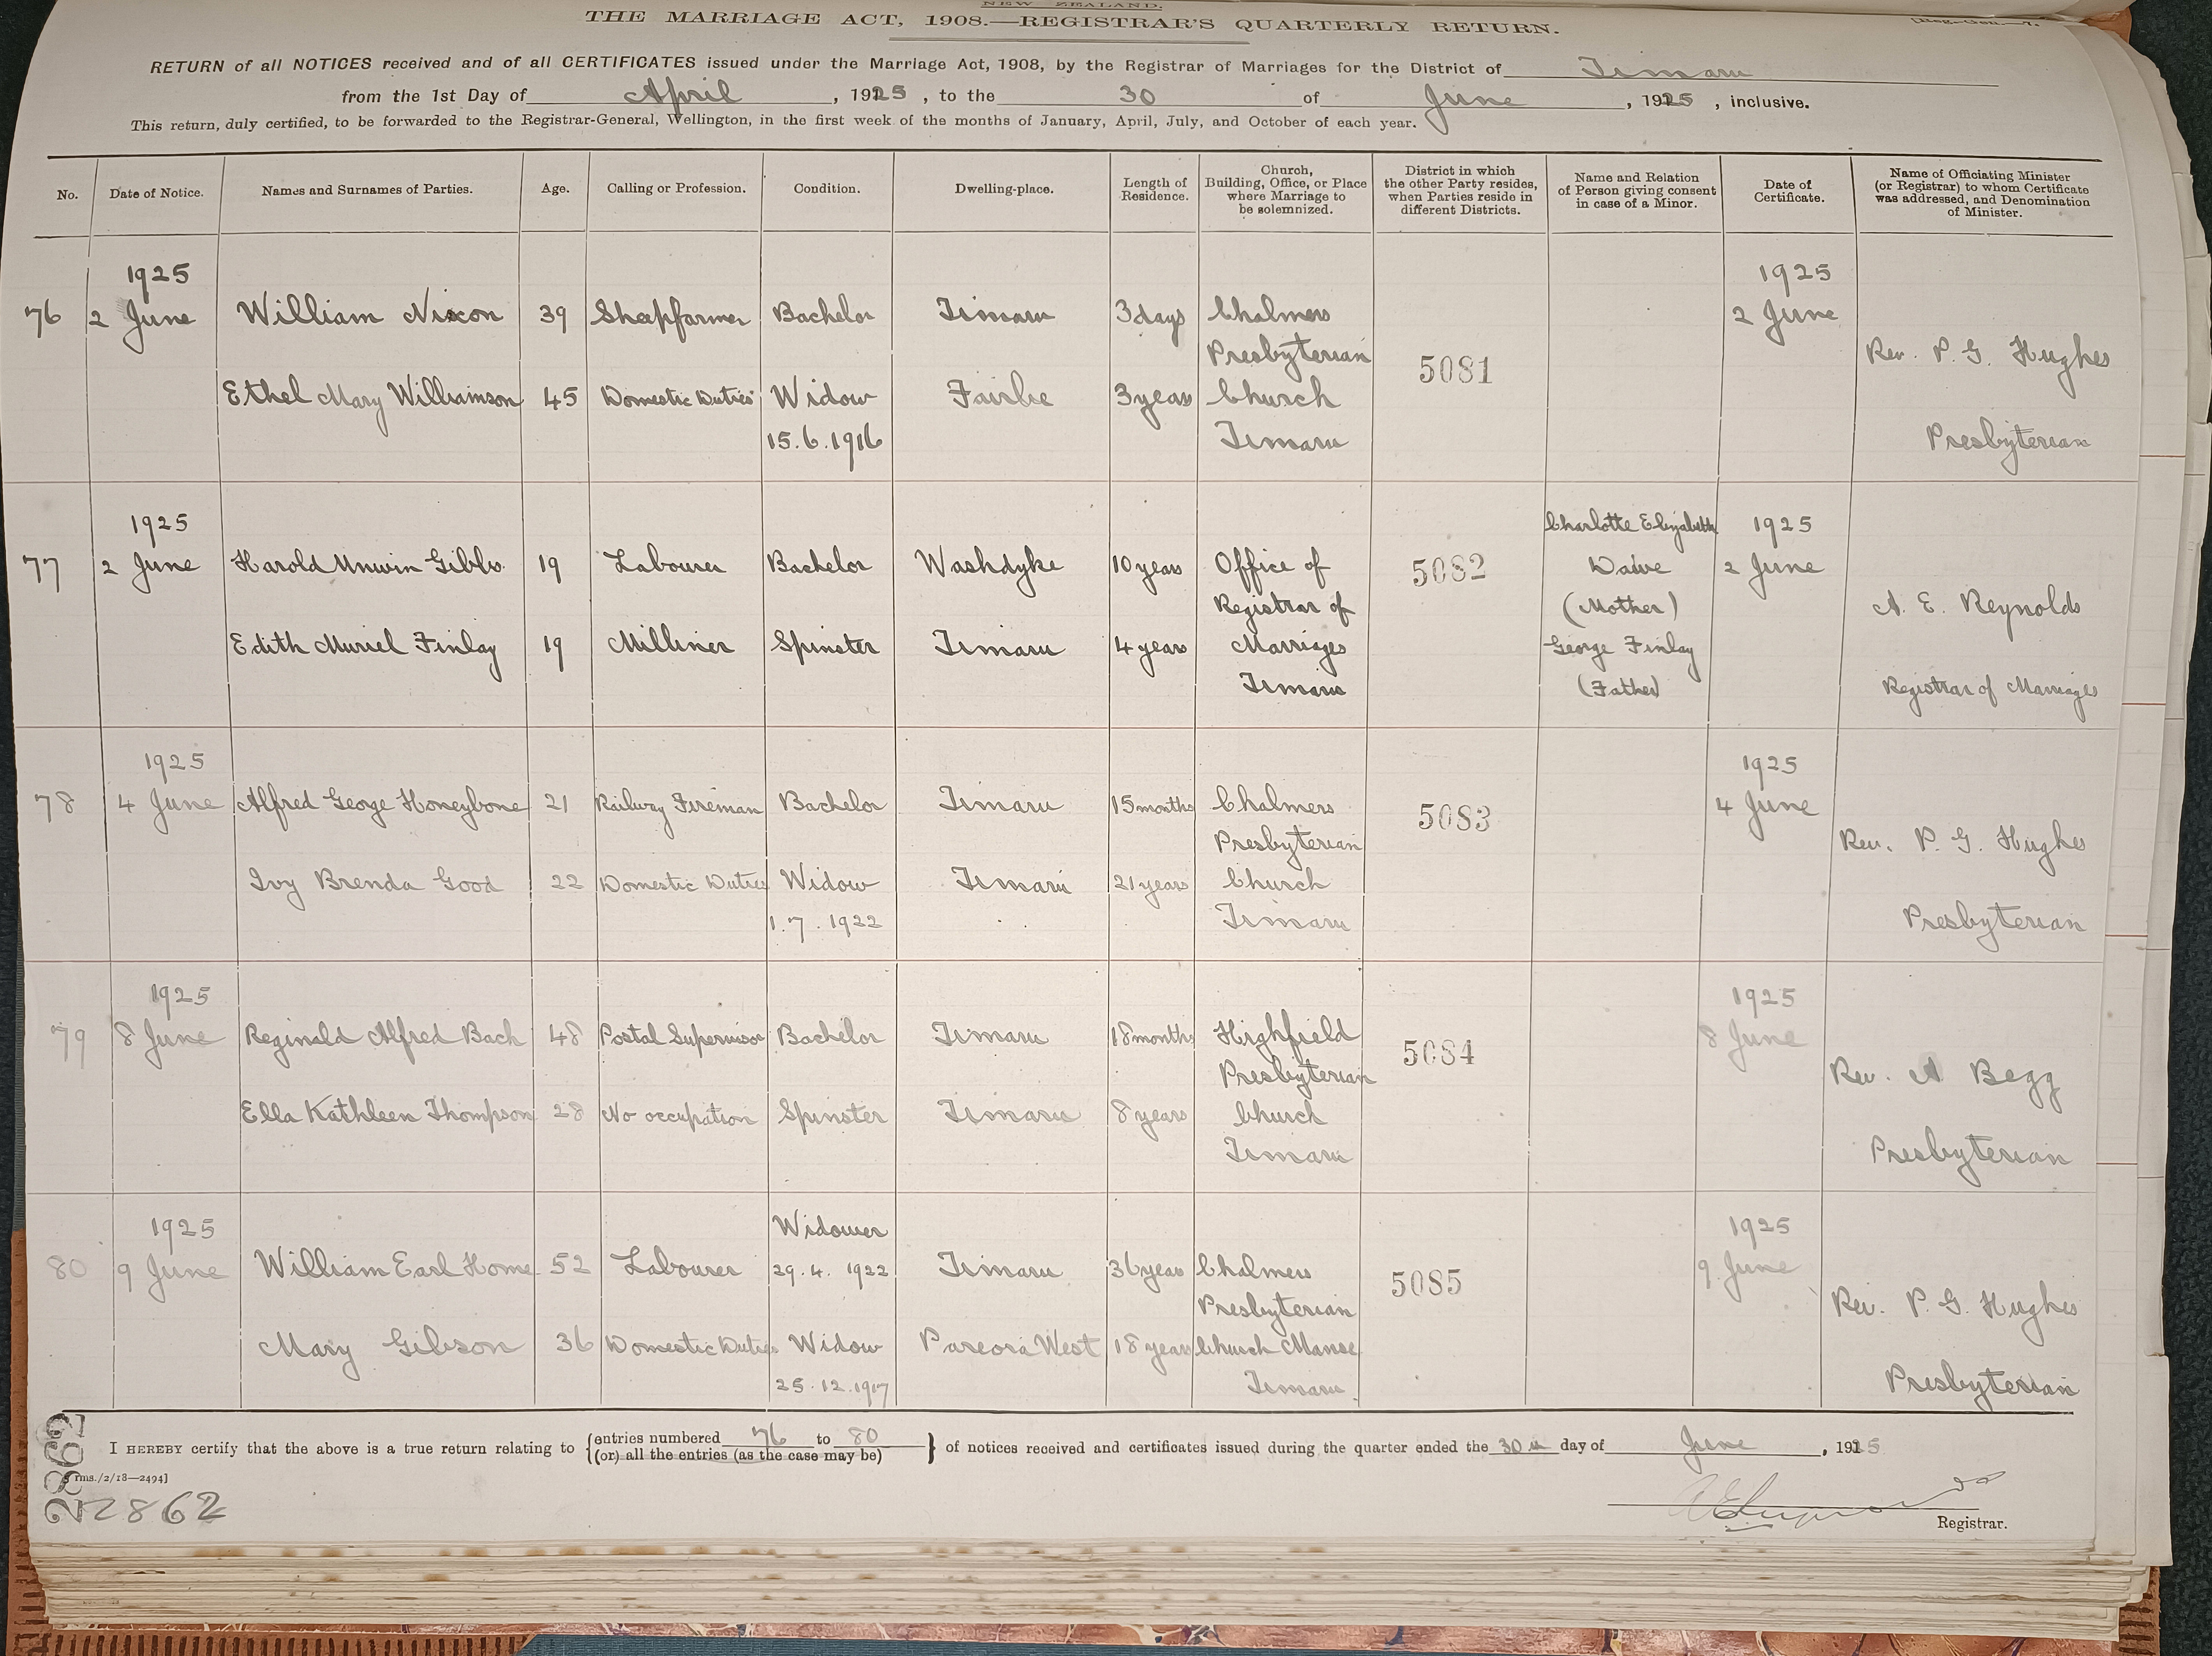 NEW ZEALAND.
THE MARRIAGE ACT, 1908.—REGISTRAR'S QUARTERLY RETURN.
[Reg.-Gen.—7.
RETURN of all NOTICES received and of all CERTIFICATES issued under the Marriage Act, 1908, by the Registrar of Marriages for the District of Timaru
from the 1st Day of April, 1925, to the 30 of June, 1925, inclusive.
This return, duly certified, to be forwarded to the Registrar-General, Wellington, in the first week of the months of January, April, July, and October of each year.
No.
Date of Notice.
Names and Surnames of Parties.
Age.
Calling or Profession.
Condition.
Dwelling-place.
Length of
Residence.
Church,
Building, Office, or Place
where Marriage to
be solemnized.
District in which
the other Party resides,
when Parties reside in
different Districts.
Name and Relation
of Person giving consent
in case of a Minor.
Date of
Certificate.
Name of Officiating Minister
(or Registrar) to whom Certificate
was addressed, and Denomination
of Minister.
1925 1925
76 2 June William Nixon 39 Sheepfarmer Bachelor Timaru 3 days Chalmers 2 June
Presbyterian 5081 Rev. P. G. Hughes
Ethel Mary Williamson 45 Domestic Duties Widow Fairlie 3 years Church
15.6.1916 Timaru Presbyterian
1925 Charlotte Elizabeth 1925
77 2 June Harold Unwin Gibbs 19 Labourer Bachelor Washdyke 10 years Office of 5082 Dawe 2 June
Registrar of (Mother) A. E. Reynolds
Edith Muriel Finlay 19 Milliner Spinster Timaru 4 years Marriages George Finlay
Timaru (Father) Registrar of Marriages
1925 1925
78 4 June Alfred George Honeybone 21 Railway Fireman Bachelor Timaru 15 months Chalmers 5083 4 June
Presbyterian Rev. P. G. Hughes
Ivy Brenda Good 22 Domestic Duties Widow Timaru 21 years Church
1.7.1922 Timaru Presbyterian
1925 1925
79 8 June Reginald Alfred Bach 48 Postal Supervisor Bachelor Timaru 18 months Highfield 5084 8 June
Presbyterian Rev. A Begg
Ella Kathleen Thompson 28 No occupation Spinster Timaru 8 years Church
Timaru Presbyterian
1925 Widower 1925
80 9 June William Earl Home 52 Labourer 29.4.1922 Timaru 36 years Chalmers 5085 9 June
Presbyterian Rev. P. G. Hughes
Mary Gibson 36 Domestic Duties Widow Pareora West 18 years Church Manse
25.12.1917 Timaru Presbyterian
I HEREBY certify that the above is a true return relating to {entries numbered 76 to 80
(or) all the entries (as the case may be)} of notices received and certificates issued during the quarter ended the 30th day of June, 1925
rms./2/18—2494]
2863
2862
Registrar.